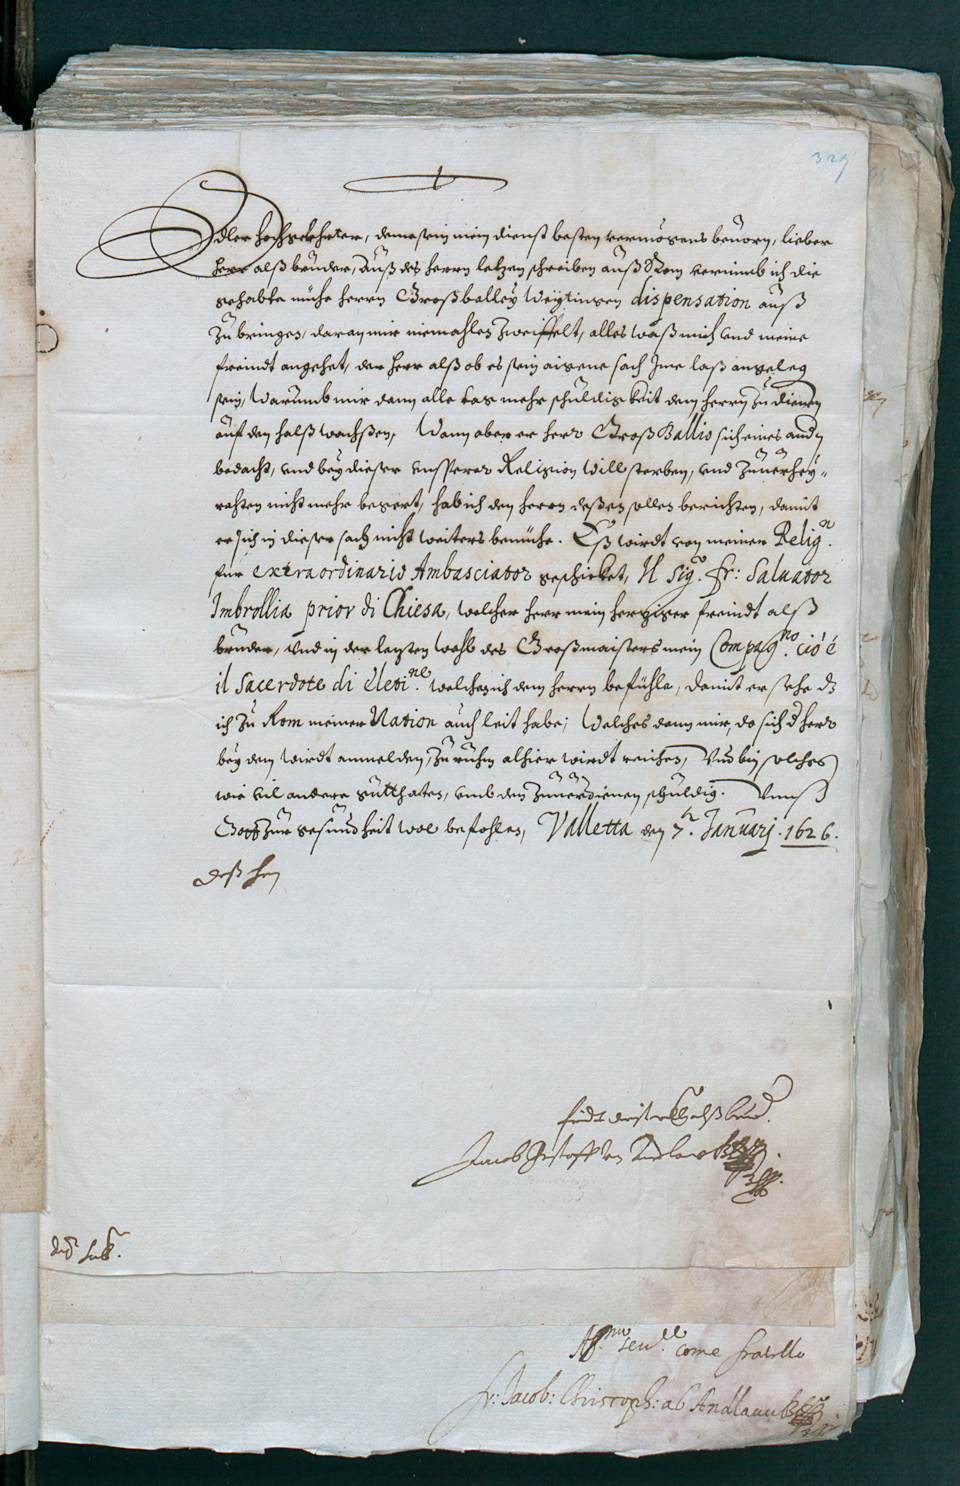 327
Edler hochgelehrter, deme sein mein dienst besten vermögens beuorn, lieber
herr alß bruder, Auß des herrn letzen schreiben auß Rom vernimb ich die
gehabte mühe herrn Großballey Weytingen dispensation auß
zu bringen, daran mir niemahlen zweiffelt, alles waß mich und meine
freindt angehet, der herr alß ob es sein aigene sach Ime laß angeleg
sein, Warumb mir dann alle tag mehr schuldigkeit dem herrn zu dienen
auf den halß wachsen, Wann aber er herr Groß Ballio sich eines andn
bedacht, und bey dieser unsserer Religion will sterben, und zuuerhey-
rahten nicht mehr begert, hab ich den herrn deßen sollen berichten, damit
er sich in dieser sach nicht weiters bemühe. Eß wirdt von meiner Relign.
für extraordinario Ambasciator geschicket, Il Sigr. fr: Saluator
Imbrollia prior di Chiesa, welcher herr mein herziger freindt alß
bruder, und in der letzten wahl des Großmaisters mein Compagno. ciò é
il Sacerdote di Eletine. welchen ich dem herrn befühle, damit er sehe dz
ich zu Rom meiner Nation auch leit habe; Welches dann mir, do sich d herr
bey dem wirdt anmelden, zu ruhm alhier wirdt reichen, Und bin solches
wie vil andere gutthaten, umb den zuuerdienen schuldig. Unnß
Gott zur gesundheit wol befohlen, Valletta den 7t. Januarj. 1626.
deß hen
alß brud.
Jacob Christoff von Andlaw
Affmo seru.re come fratello
fr: Jacob: Christoph: ab Andlauu